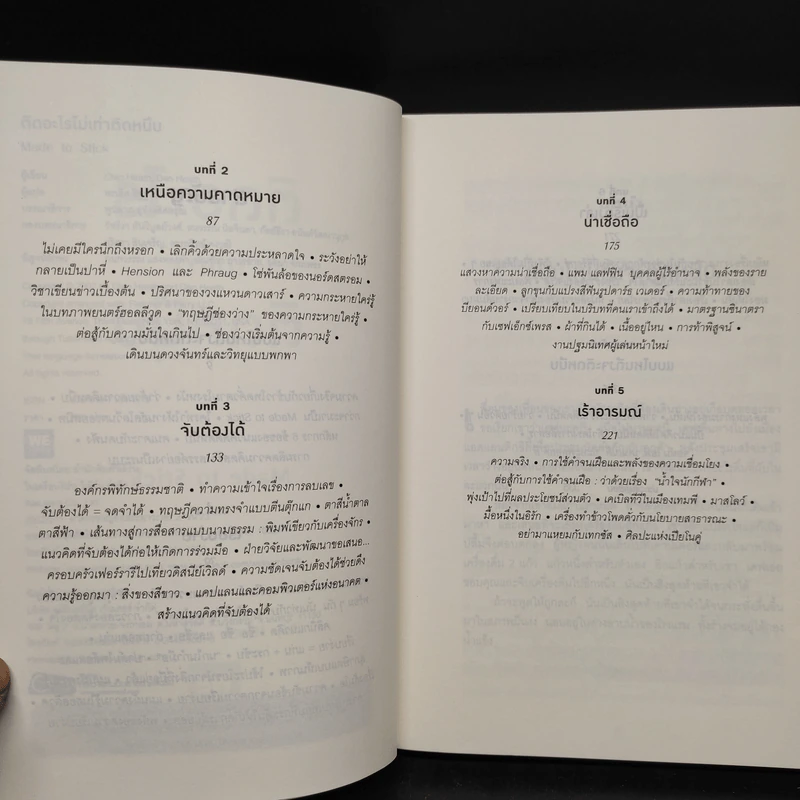 บทที่ 2
เหนือความคาดหมาย
87
ไม่เคยมีใครนึกถึงหรอก • เลิกคิ้วด้วยความประหลาดใจ • ระวังอย่าให้
กลายเป็นปาหี่ • Hension และ Phraug • โซ่พันล้อของนอร์ดสตรอม •
วิชาเขียนข่าวเบื้องต้น • ปริศนาของวงแหวนดาวเสาร์ • ความกระหายใคร่รู้
ในบทภาพยนตร์ฮอลลีวูด • “ทฤษฎีช่องว่าง” ของความกระหายใคร่รู้ •
ต่อสู้กับความมั่นใจเกินไป • ช่องว่างเริ่มต้นจากความรู้ •
เดินบนดวงจันทร์และวิทยุแบบพกพา
บทที่ 3
จับต้องได้
133
องค์กรพิทักษ์ธรรมชาติ • ทำความเข้าใจเรื่องการลบเลข •
จับต้องได้ = จดจำได้ • ทฤษฎีความทรงจำแบบตีนตุ๊กแก • ตาสีน้ำตาล
ตาสีฟ้า • เส้นทางสู่การสื่อสารแบบนามธรรม : พิมพ์เขียวกับเครื่องจักร •
แนวคิดที่จับต้องได้ก่อให้เกิดการร่วมมือ • ฝ่ายวิจัยและพัฒนาขอเสนอ...
ครอบครัวเฟอร์รารีไปเที่ยวดิสนีย์เวิลด์ • ความชัดเจนจับต้องได้ช่วยดึง
ความรู้ออกมา : สิ่งของสีขาว • แคปแลนและคอมพิวเตอร์แห่งอนาคต •
สร้างแนวคิดที่จับต้องได้
บทที่ 4
น่าเชื่อถือ
175
แสวงหาความน่าเชื่อถือ • แพม แลฟฟิน บุคคลผู้ไร้อำนาจ • พลังของราย
ละเอียด • ลูกขุนกับแปรงสีฟันรูปดาร์ธ เวเดอร์ • ความท้าทายของ
บียอนด์วอร์ • เปรียบเทียบในบริบทที่คนเราเข้าถึงได้ • มาตรฐานซินาตรา
กับเซฟเอ็กซ์เพรส • ผ้าที่กินได้ • เนื้ออยู่ไหน • การท้าพิสูจน์ •
งานปฐมนิเทศผู้เล่นหน้าใหม่
บทที่ 5
เร้าอารมณ์
221
ความจริง • การใช้คำจนเฝือและพลังของความเชื่อมโยง •
ต่อสู้กับการใช้คำจนเฝือ : ว่าด้วยเรื่อง “น้ำใจนักกีฬา” •
พุ่งเป้าไปที่ผลประโยชน์ส่วนตัว • เคเบิลทีวีในเมืองเทมพี • มาสโลว์ •
มื้อหนึ่งในอิรัก • เครื่องทำข้าวโพดคั่วกับนโยบายสาธารณะ •
อย่ามาแหยมกับเทกซัส • ศิลปะแห่งเปียโนคู่